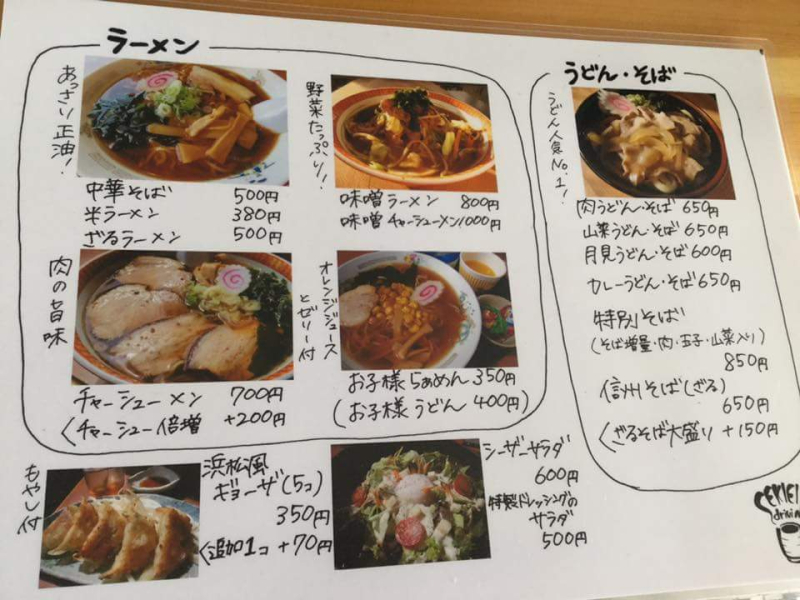 ラーメン
あっさり正油!
中華そば 500円
半ラーメン 380円
ざるラーメン 500円
野菜たっぷり!
味噌ラーメン 800円
味噌チャーシューメン1000円
肉の旨味
チャーシューメン 700円
くチャーシュー倍増 +200円
オレンジジュース
とゼリー付
お子様らぁめん 350円
(お子様うどん 400円)
うどん・そば
うどん人気No.1!
肉うどん・そば 650円
山菜うどん・そば 650円
月見うどん・そば 600円
カレーうどん・そば 650円
特別そば
(そば増量・肉・玉子・山菜入り)
850円
信州そば(ざる)
650円
くざるそば大盛り +150円
もやし付
浜松風
ギョーザ(5コ)
350円
く追加1コ +70円
シーザーサラダ
600円
特製ドレッシングの
サラダ
500円